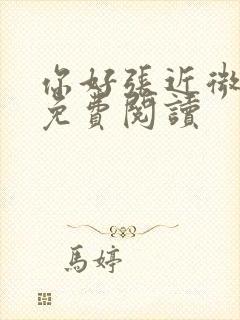 你好張近微
免費閱讀
馬婷